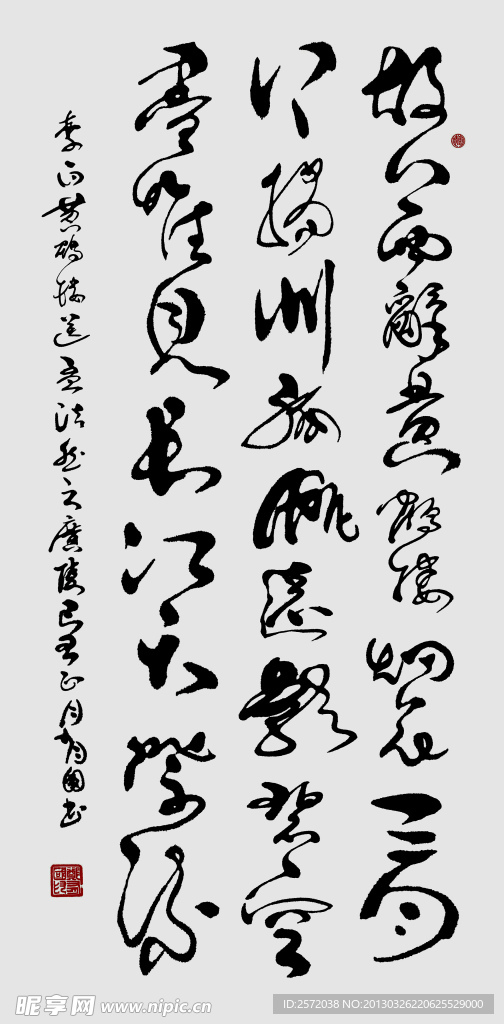 故人西辭黃鶴樓烟花三月
下揚州孤帆遠影碧空
盡唯見長江天際流
李白黃鶴樓送孟浩然之廣陵己丑正月國書
昵享网 www.nipic.cn
ID:2572038 NO:20130326220625529000